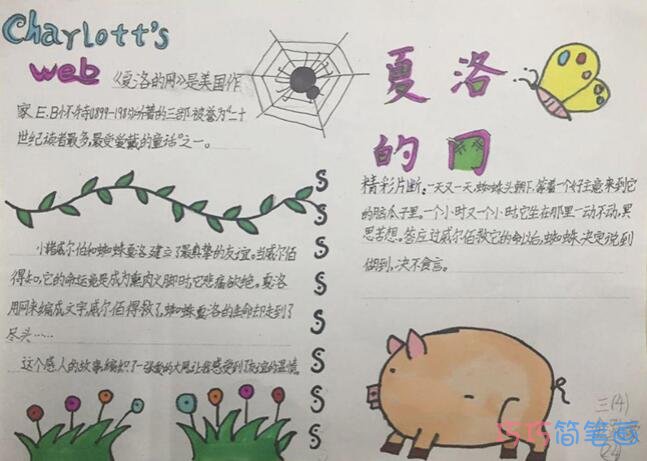 Charlott's
web
《夏洛的网》是美国作
家E.B怀特(1899-1985)所著的三部被誉为"二十
世纪读者最多,最受爱戴的童话"之一。
小猪威尔伯和蜘蛛夏洛建立了最真挚的友谊。当威尔伯
得知,它的命运竟是成为熏肉火腿时,它悲痛欲绝。夏洛
用网来编成文字,威尔伯得救了,蜘蛛夏洛的生命却走到了
尽头……
这个感人的故事,编织了一张爱的大网,让我感受到了友谊的温情。
S
S
S
S
S
S
S
S
夏洛
的网
精彩片断:一天又一天,蜘蛛头朝下,等着一个好主意来到它
的脑瓜子里。一个小时又一个小时,它坐在那里一动不动,冥
思苦想。答应过威尔伯救它的命,蜘蛛决定说到
做到,决不食言。
三(4)
巧巧简笔画
24